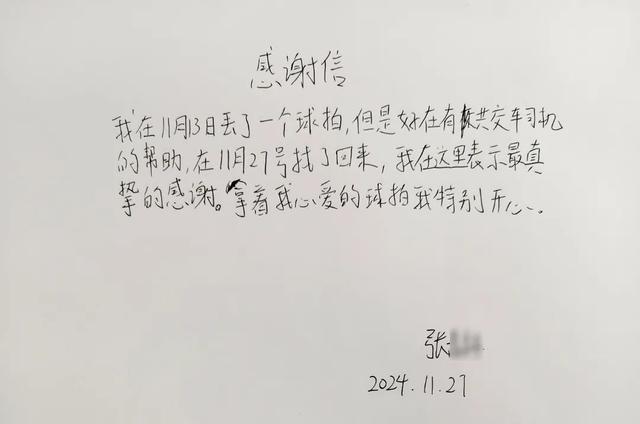 感谢信
我在11月13日丢了一个球拍,但是好在有公共交车司机
的帮助,在11月27号找了回来,我在这里表示最真
挚的感谢。拿着我心爱的球拍我特别开心.
张
2024.11.27